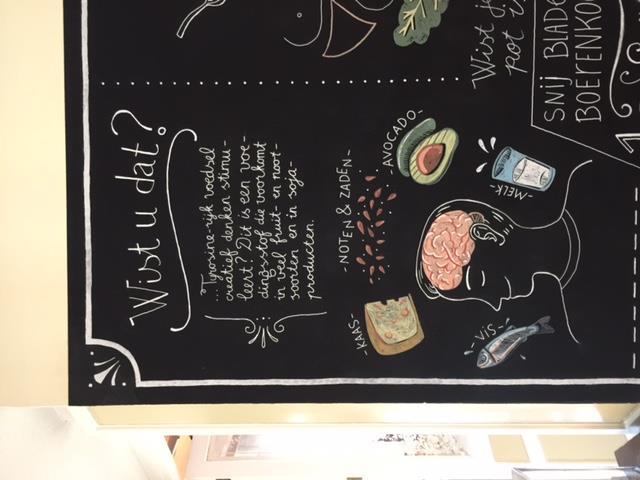 Wist u dat?
...Tyrosine-rijk voedsel
creatief denken stimu-
leert? Dit is een voe-
dingsstof die voorkomt
in veel fruit- en noot-
soorten en in soja-
producten.
-NOTEN & ZADEN-
-AVOCADO-
-KAAS-
-MELK-
-VIS-
Wist je
pot i
SNIJ BLADE
BOERENKOO